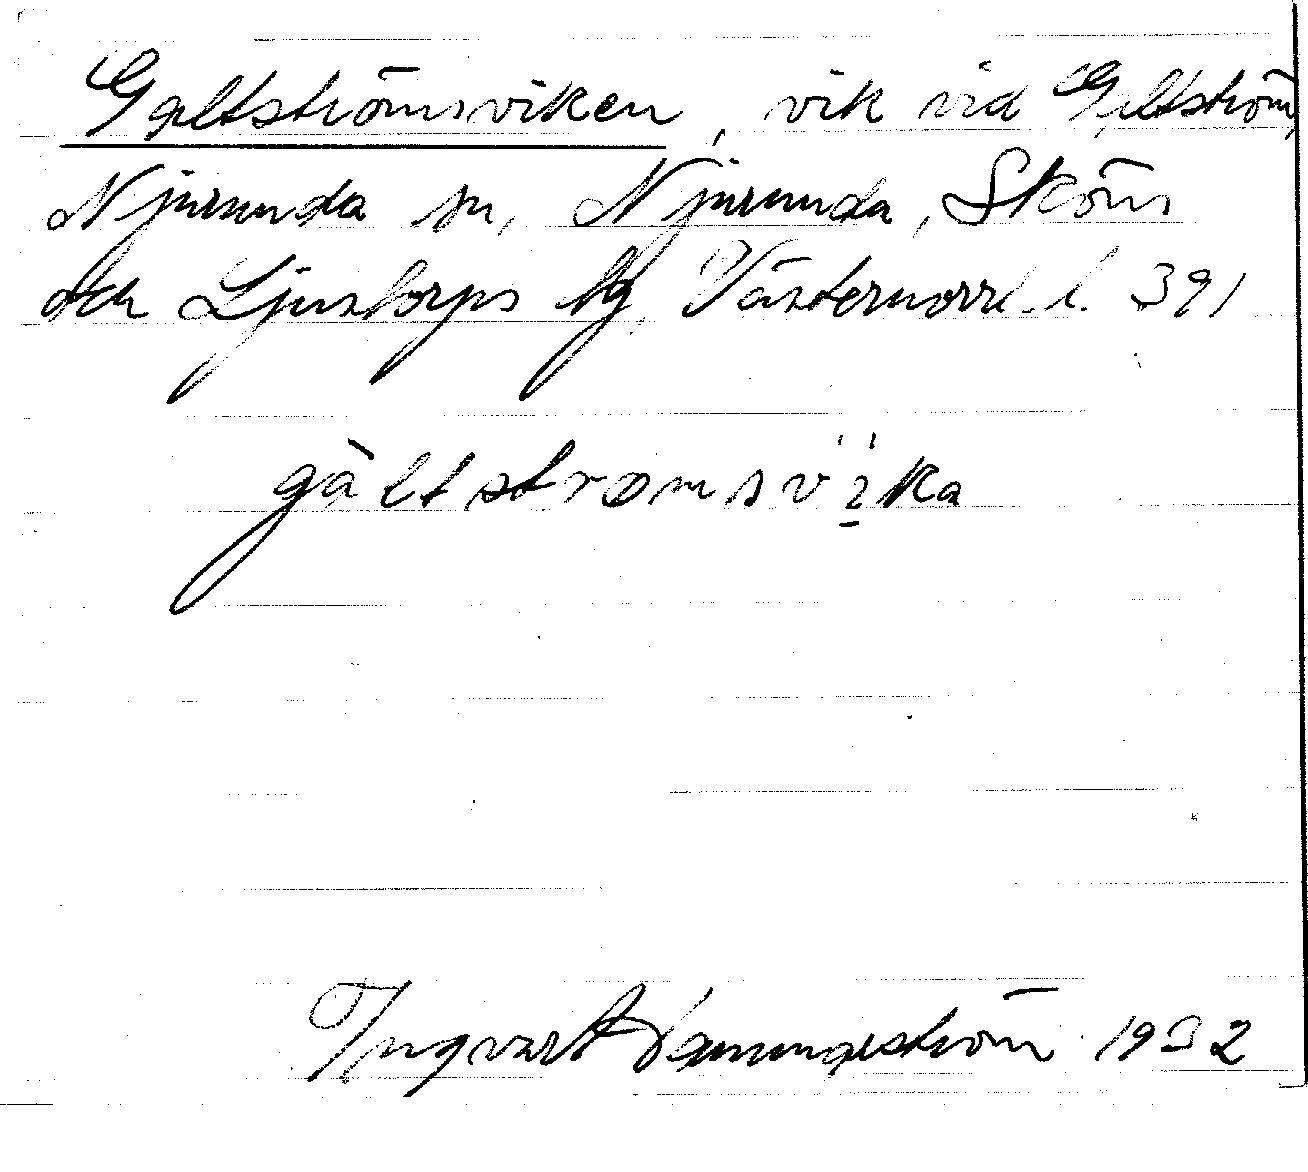 Galtströmsviken, vik vid Galtström,
Njurunda sn, Njurunda, Sköns
och Ljustorps tg, Västernorrl. l. 391
gàltstromsvika
Ingvart 1932